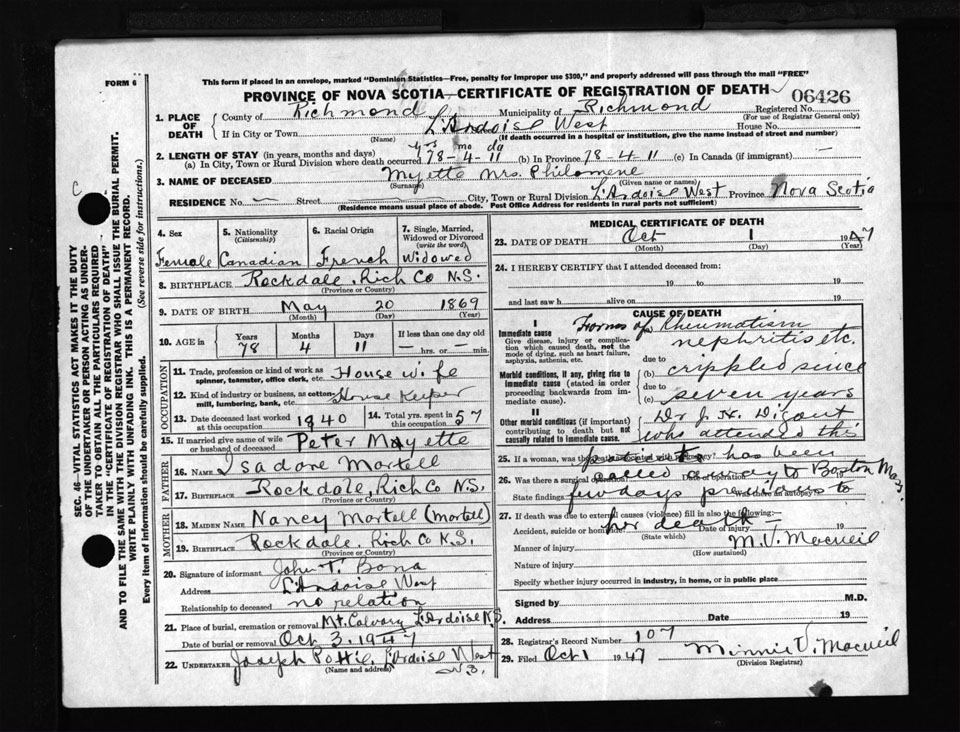 FORM 6
This form if placed in an envelope, marked "Dominion Statistics—Free, penalty for improper use $300," and properly addressed will pass through the mail "FREE"
PROVINCE OF NOVA SCOTIA—CERTIFICATE OF REGISTRATION OF DEATH
06426
1. PLACE OF DEATH
County of Richmond Municipality of Richmond Registered No.
(For use of Registrar General only)
If in City or Town L'Ardoise West House No.
(Name) (If death occurred in a hospital or institution, give the name instead of street and number)
yrs mo da
2. LENGTH OF STAY (in years, months and days)
(a) In City, Town or Rural Division where death occurred 78-4-11 (b) In Province 78-4-11 (c) In Canada (if immigrant) —
3. NAME OF DECEASED Myette Mrs. Philomene
(Surname) (Given name or names)
RESIDENCE No. — Street — City, Town or Rural Division L'Ardoise West Province Nova Scotia
(Residence means usual place of abode. Post Office Address for residents in rural parts not sufficient)
SEC. 46—VITAL STATISTICS ACT MAKES IT THE DUTY
OF THE UNDERTAKER OR PERSON ACTING AS UNDERTAKER TO OBTAIN ALL THE PARTICULARS REQUIRED
IN THE "CERTIFICATE OF REGISTRATION OF DEATH"
AND TO FILE THE SAME WITH THE DIVISION REGISTRAR WHO SHALL ISSUE THE BURIAL PERMIT.
WRITE PLAINLY WITH UNFADING INK. THIS IS A PERMANENT RECORD.
Every item of information should be carefully supplied. (See reverse side for instructions.)
4. Sex Female
5. Nationality (Citizenship) Canadian
6. Racial Origin French
7. Single, Married, Widowed or Divorced (write the word) Widowed
8. BIRTHPLACE Rockdale, Rich Co N.S.
(Province or Country)
9. DATE OF BIRTH May 20 1869
(Month) (Day) (Year)
10. AGE in Years 78 Months 4 Days 11 If less than one day old — hrs. or — min.
OCCUPATION
11. Trade, profession or kind of work as spinner, teamster, office clerk, etc. House wife
12. Kind of industry or business, as cotton-mill, lumbering, bank, etc. House Keeper
13. Date deceased last worked at this occupation 1940
14. Total yrs. spent in this occupation 57
15. If married give name of wife or husband of deceased Peter Mayette
FATHER
16. NAME Isadore Martell
17. BIRTHPLACE Rockdale, Rich Co N.S.
(Province or Country)
MOTHER
18. MAIDEN NAME Nancy Martell (Martell)
19. BIRTHPLACE Rockdale. Rich Co N.S.
(Province or Country)
20. Signature of informant John T. Bona
Address L'Ardoise West
Relationship to deceased no relation
21. Place of burial, cremation or removal Mt. Calvary L'Ardoise N.S.
Date of burial or removal Oct 3, 1947
22. UNDERTAKER Joseph Pottie, L'Ardoise West
(Name and address) N.S.
MEDICAL CERTIFICATE OF DEATH
23. DATE OF DEATH Oct 1 1947
(Month) (Day) (Year)
24. I HEREBY CERTIFY that I attended deceased from:
19 to 19
and last saw h alive on 19
CAUSE OF DEATH
I
Immediate cause
Give disease, injury or complication which caused death, not the mode of dying, such as heart failure, asphyxia, asthenia, etc.
Forms of Rheumatism
nephritis etc.
due to
Morbid conditions, if any, giving rise to immediate cause (stated in order proceeding backwards from immediate cause).
(b) crippled since
due to
(c) seven years
II
Other morbid conditions (if important) contributing to death but not causally related to immediate cause.
who attended this
25. If a woman, was the death associated with pregnancy?
has been
26. Was there a surgical operation? Date of operation
called away to Boston Mass.
State findings Was there an autopsy?
few days previous to
27. If death was due to external causes (violence) fill in also the following:—
her death —
Accident, suicide or homicide Date of injury 19
(State which)
M.V. Macneil
Manner of injury
(How sustained)
Nature of injury
Specify whether injury occurred in industry, in home, or in public place
Signed by M.D.
Address Date 19
28. Registrar's Record Number 107
29. Filed Oct 1 1947 Minnie V. Macneil
(Division Registrar)